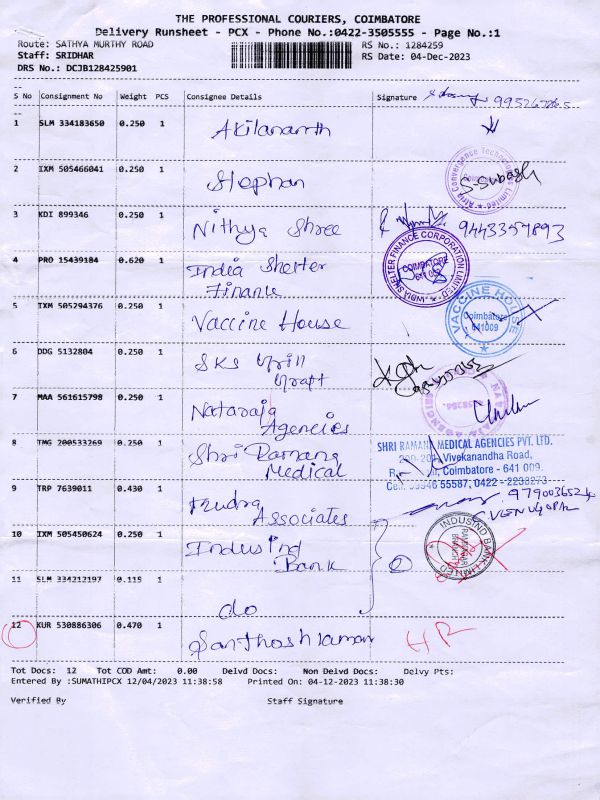 THE PROFESSIONAL COURIERS, COIMBATORE
Delivery Runsheet - PCX - Phone No.:0422-3505555 - Page No.:1
Route: SATHYA MURTHY ROAD RS No.: 1284259
Staff: SRIDHAR RS Date: 04-Dec-2023
DRS No.: DCJB128425901
S No Consignment No Weight PCS Consignee Details Signature
1 SLM 334183650 0.250 1 Akilananth
2 IXM 505466041 0.250 1 Stephan S-Subash
3 KDI 899346 0.250 1 Nithya Shree 9443357893
4 PRO 15439184 0.620 1 India Shelter
Finance
INDIA SHELTER FINANCE CORPORATION LIMITED
COIMBATORE
641 012
5 IXM 505294376 0.250 1 Vaccine House
VACCINE HOUSE
Coimbatore
641009
6 DDG 5132804 0.250 1 SKS Grill
Kraft
7 MAA 561615798 0.250 1 Nataraja
Agencies
8 TMG 200533269 0.250 1 Shri Ramana
Medical
SHRI RAMANA MEDICAL AGENCIES PVT. LTD.
Vivekanandha Road,
Coimbatore - 641 009.
55587, 0422 - 2238273
9 TRP 7639011 0.430 1 Rudra
Associates
C.VENUGOPAL
10 IXM 505450624 0.250 1 Indusind
Bank
INDUSIND BANK LIMITED
11 SLM 334212197 0.115 1 do
12 KUR 530886306 0.470 1 Santhoshkumar HR
Tot Docs: 12 Tot COD Amt: 0.00 Delvd Docs: Non Delvd Docs: Delvy Pts:
Entered By :SUMATHIPCX 12/04/2023 11:38:58 Printed On: 04-12-2023 11:38:30
Verified By Staff Signature